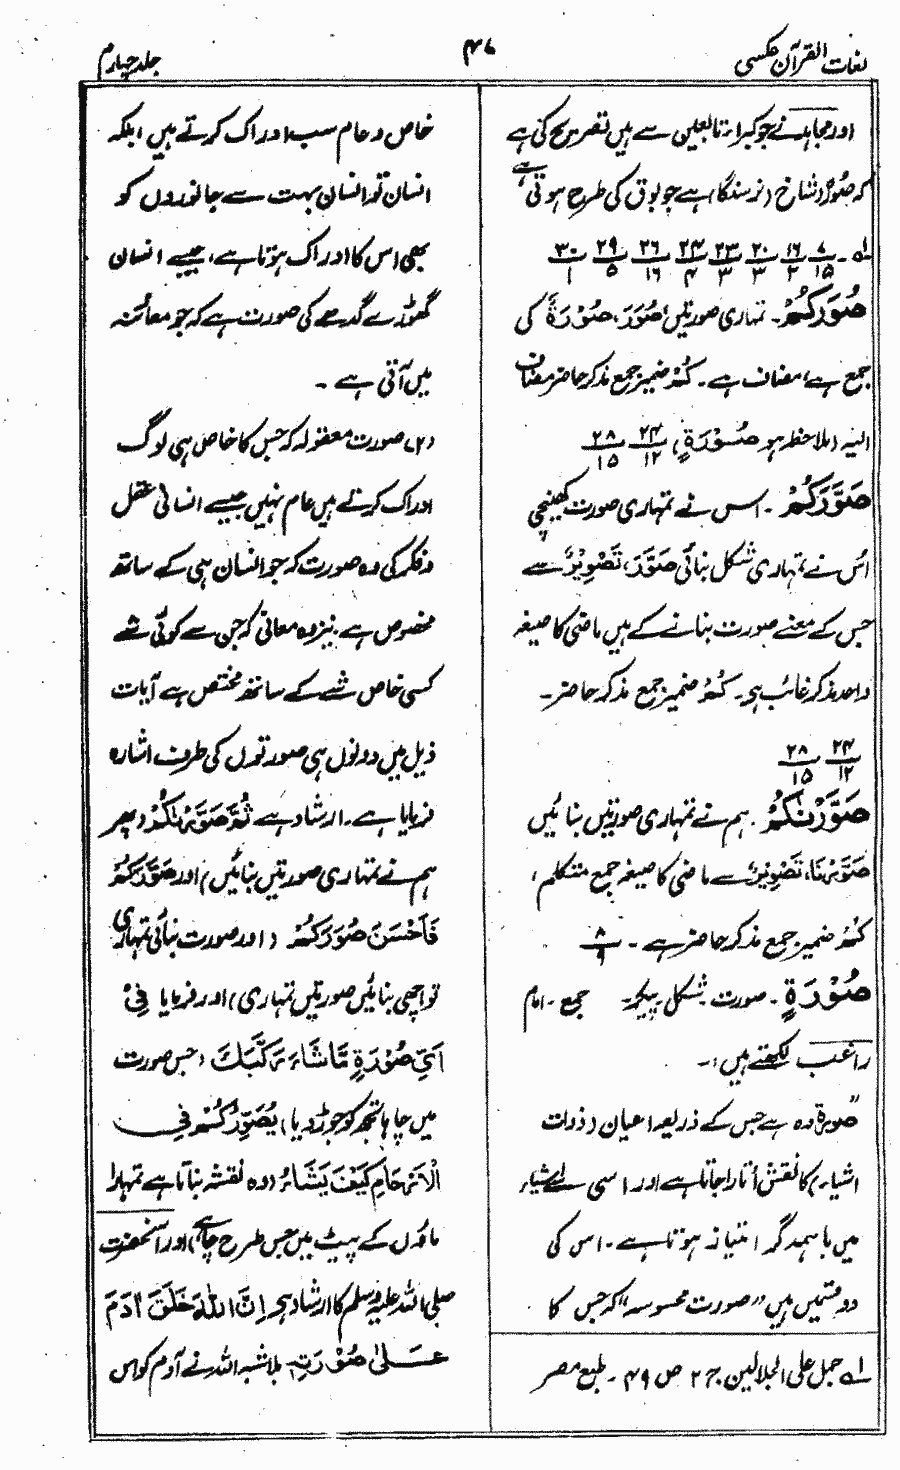 لغات القرآن عکسی
۴۷
جلد چہارم
اور مجاہد نے جو کبراء تابعین سے ہیں تصریح کی ہے
کہ صُوْر شاخ (نرسنگا) ہے جو بوق کی طرح ہوتی ہے
لہ - ۷/۱۵ ۱۶/۲ ۲۰/۳ ۲۳/۳ ۲۴/۴ ۲۶/۱۶ ۲۹/۵ ۳۰/۱
صُوَرَكُمْ۔ تمہاری صورتیں؛ صُوَرَ، صُوْرَةٌ کی
جمع ہے، مضاف ہے۔ كُمْ ضمیر جمع مذکر حاضر مضاف
الیہ (ملاحظہ ہو صُوْرَةٍ) ۲۴/۱۲ ۲۸/۱۵
صَوَّرَكُمْ۔ اس نے تمہاری صورت کھینچی
اُس نے تمہاری شکل بنائی صَوَّرَ، تَصْوِيْرٌ سے
جس کے معنے صورت بنانے کے ہیں ماضی کا صیغہ
واحد مذکر غائب ہے۔ كُمْ ضمیر جمع مذکر حاضر۔
۲۴/۱۲ ۲۸/۱۵
صَوَّرْنٰكُمْ۔ ہم نے تمہاری صورتیں بنائیں
صَوَّرْنَا، تَصْوِيْرٌ سے ماضی کا صیغہ جمع متکلم،
كُمْ ضمیر جمع مذکر حاضر ہے۔ ۸/۹
صُوْرَةٍ۔ صورت۔ شکل۔ پیکر۔ جمع۔ امام
راغب لکھتے ہیں:۔
"صورۃ وہ ہے جس کے ذریعہ اعیان (ذوات
اشیاء) کا نقش اُتارا جاتا ہے اور اسی سے اشیاء
میں باہمدگر امتیاز ہوتا ہے۔ اس کی
دو قسمیں ہیں "صورت محسوسہ" کہ جس کا
لہ جمل علی الجلالین ج ۲ ص ۴۹۔ طبع مصر
خاص و عام سب ادراک کرتے ہیں، بلکہ
انسان تو انسان بہت سے جانوروں کو
بھی اس کا ادراک ہوتا ہے، جیسے انسان
گھوڑے گدھے کی صورت ہے کہ جو معائنہ
میں آتی ہے۔
(۲) صورت معقولہ کہ جس کا خاص ہی لوگ
ادراک کرتے ہیں عام نہیں جیسے انسانی عقل
و فکر کی وہ صورت کہ جو انسان ہی کے ساتھ
مخصوص ہے۔ نیز وہ معانی کہ جن سے کوئی شے
کسی خاص شے کے ساتھ مختص ہے آیات
ذیل میں دونوں ہی صورتوں کی طرف اشارہ
فرمایا ہے۔ ارشاد ہے ثُمَّ صَوَّرْنٰكُمْ (پھر
ہم نے تمہاری صورتیں بنائیں) اور صَوَّرَكُمْ
فَاَحْسَنَ صُوَرَكُمْ (اور صورت بنائی تمہاری
تو اچھی بنائیں صورتیں تمہاری) اور فرمایا فِيْ
اَيِّ صُوْرَةٍ مَّا شَاءَ رَكَّبَكَ (جس صورت
میں چاہا تجھ کو جوڑ دیا) يُصَوِّرُكُمْ فِي
الْاَرْحَامِ كَيْفَ يَشَاءُ (وہ نقشہ بناتا ہے تمہارا
ماؤں کے پیٹ میں جس طرح چاہے) اور آنحضرت
صلی اللہ علیہ وسلم کا ارشاد ہے اِنَّ اللّٰهَ خَلَقَ آدَمَ
عَلٰى صُوْرَتِهٖ بلاشبہ اللہ نے آدم کو اس